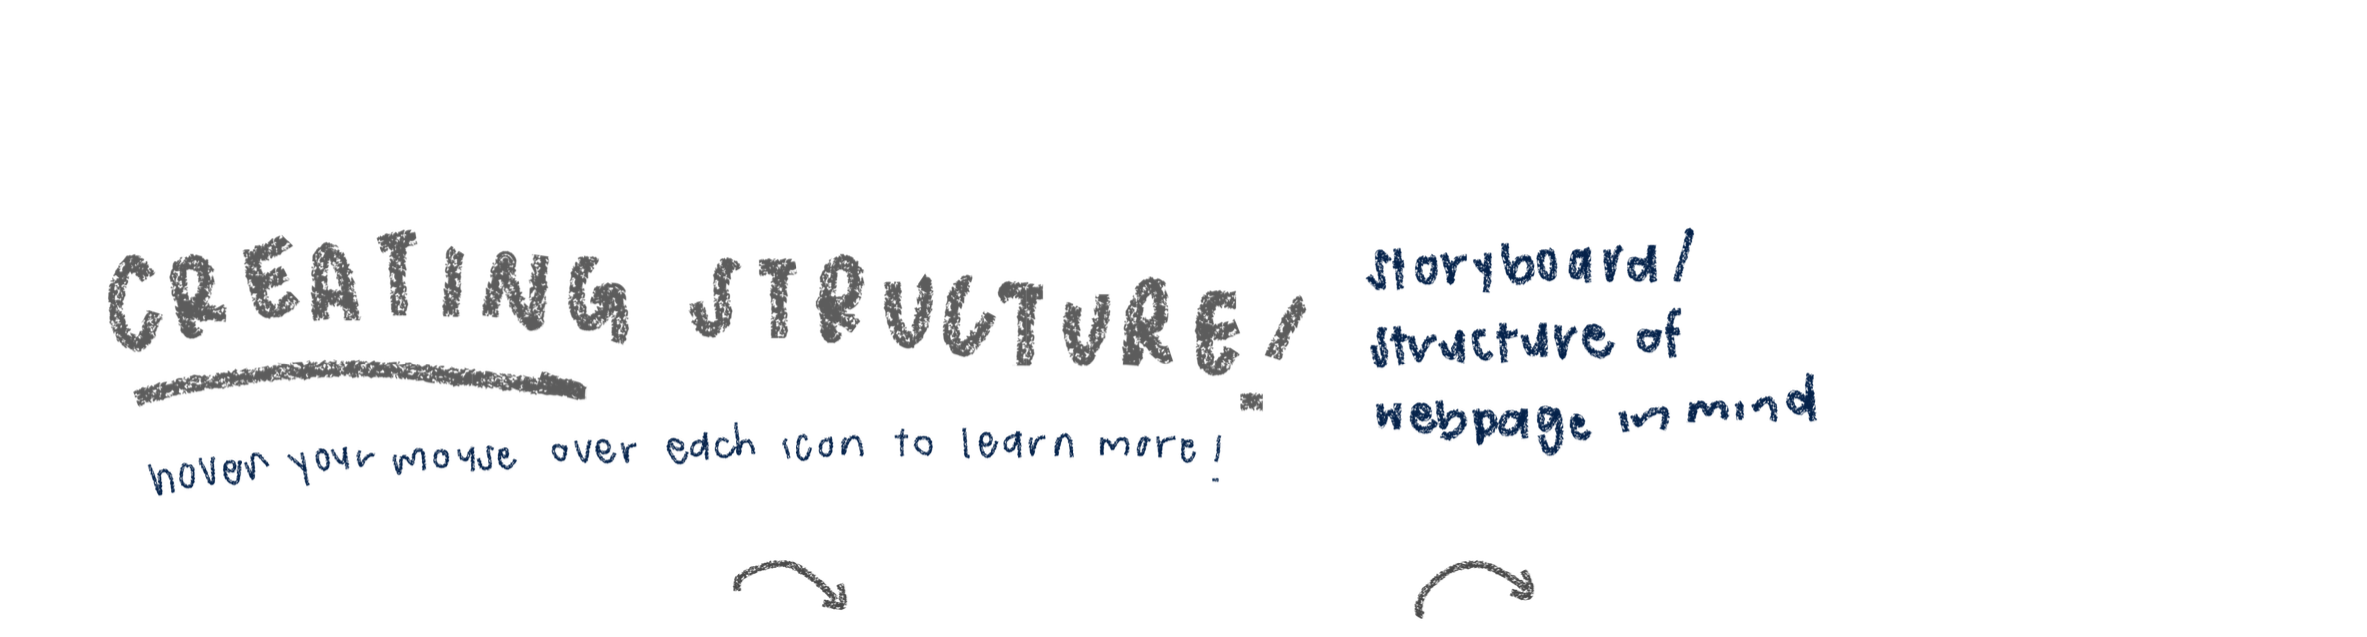 CREATING STRUCTURE!
hover your mouse over each icon to learn more!
storyboard/
structure of
webpage in mind